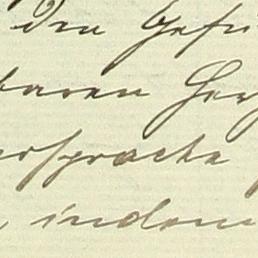 den Gefü
baren Her
rsprache
indem